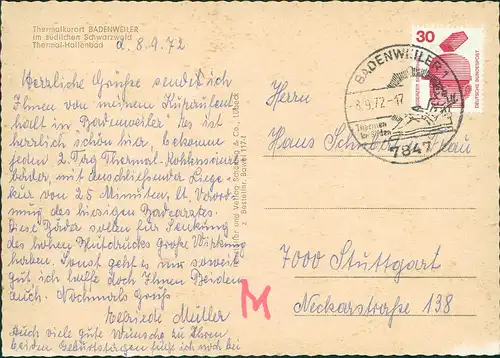 Thermalkurort BADENWEILER
im südlichen Schwarzwald
Thermal-Hallenbad
d. 8.9.72
Herzliche Grüße sendet ich
Ihnen von meinem Kuraufent
halt in Badenweiler. Es ist
herrlich schön hier, bekomme
jeden 2. Tag Thermal-Kohlensäure
bäder, mit anschließender Liege-
kur von 25 Minuten, lt. Verord
nung des hiesigen Badearztes.
Diese Bäder sollen für Senkung
des hohen Blutdrucks große Wirkung
haben. Sonst geht es mir soweit
gut ich hoffe doch Ihnen Beiden
auch. Nochmals Gruß
Elfriede Müller
Auch viele gute Wünsche zu Ihren
beiden Geburtstagen füge ich noch bei
Verlag Schöning & Co., Lübeck
Bestellnr. Bawei 117
30
DEUTSCHE BUNDESPOST
BADENWEILER 1
8.9.72-17
Thermen
im Süden
7847
Herrn
Hans
7000 Stuttgart
Neckarstraße 138
M